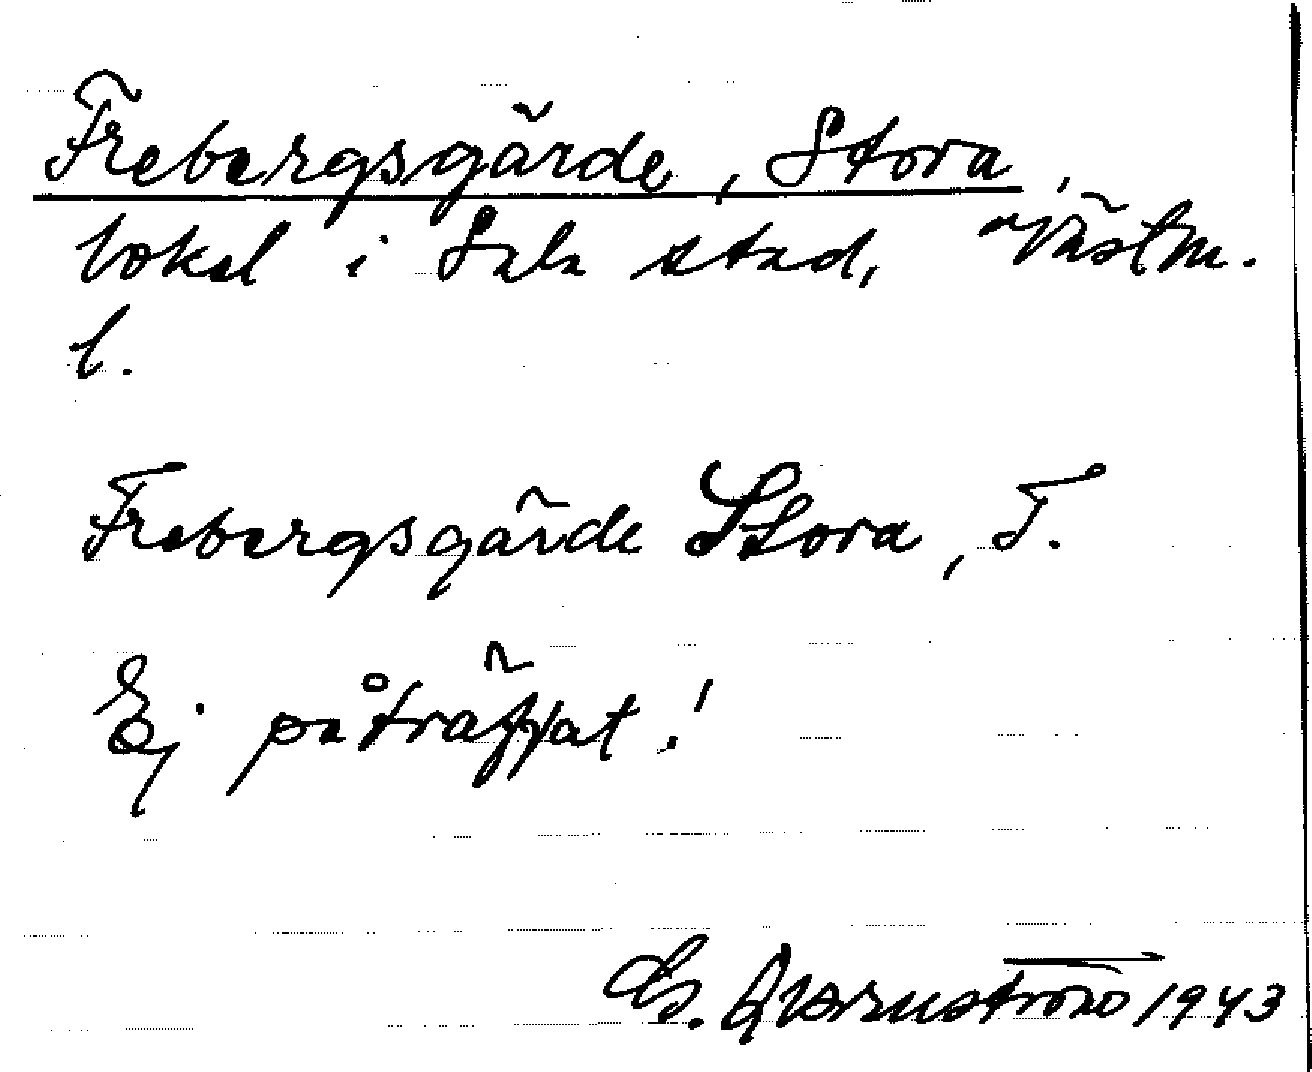 Frebergsgärde, Stora,
lokal i Sala stad, Västm.
l.
Frebergsgärde Stora, T.
Ej påträffat!
G. Qvarnström 1943